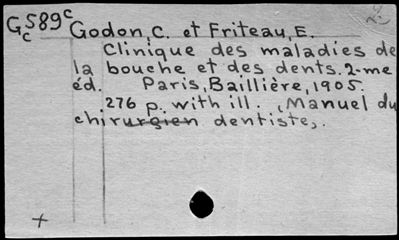 Gc589c Godon, C. et Friteau, E.
Clinique des maladies de
la bouche et des dents. 2-me
éd. Paris, Baillière, 1905.
276 p. with ill. (Manuel du
chirurgien dentiste).